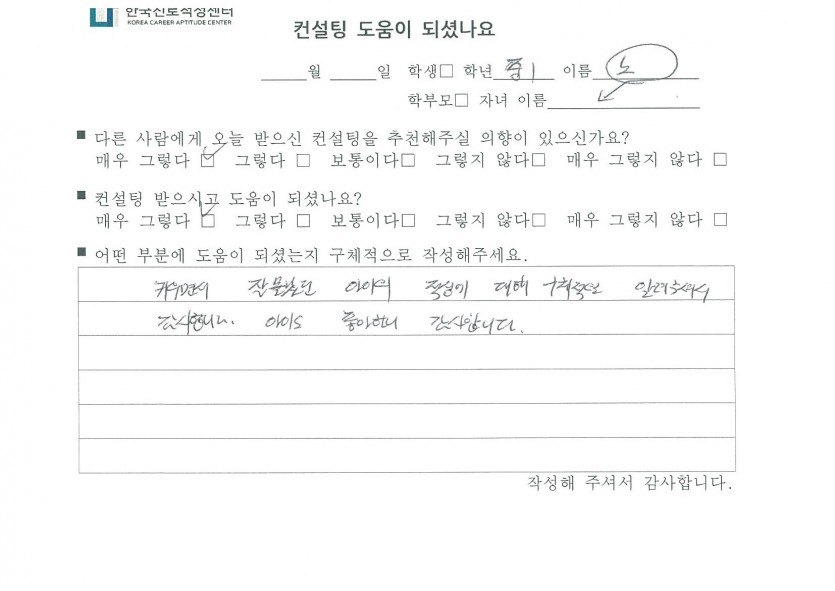 한국진로적성센터
KOREA CAREER APTITUDE CENTER
컨설팅 도움이 되셨나요
월 일 학생□ 학년 중1 이름 노
학부모□ 자녀 이름
■ 다른 사람에게 오늘 받으신 컨설팅을 추천해주실 의향이 있으신가요?
매우 그렇다 ☑ 그렇다 □ 보통이다□ 그렇지 않다□ 매우 그렇지 않다 □
■ 컨설팅 받으시고 도움이 되셨나요?
매우 그렇다 ☑ 그렇다 □ 보통이다□ 그렇지 않다□ 매우 그렇지 않다 □
■ 어떤 부분에 도움이 되셨는지 구체적으로 작성해주세요.
키우면서 잘 몰랐던 아이의 적성에 대해 구체적으로 알려주셔서
감사합니다. 아이도 좋아하니 감사합니다.
작성해 주셔서 감사합니다.